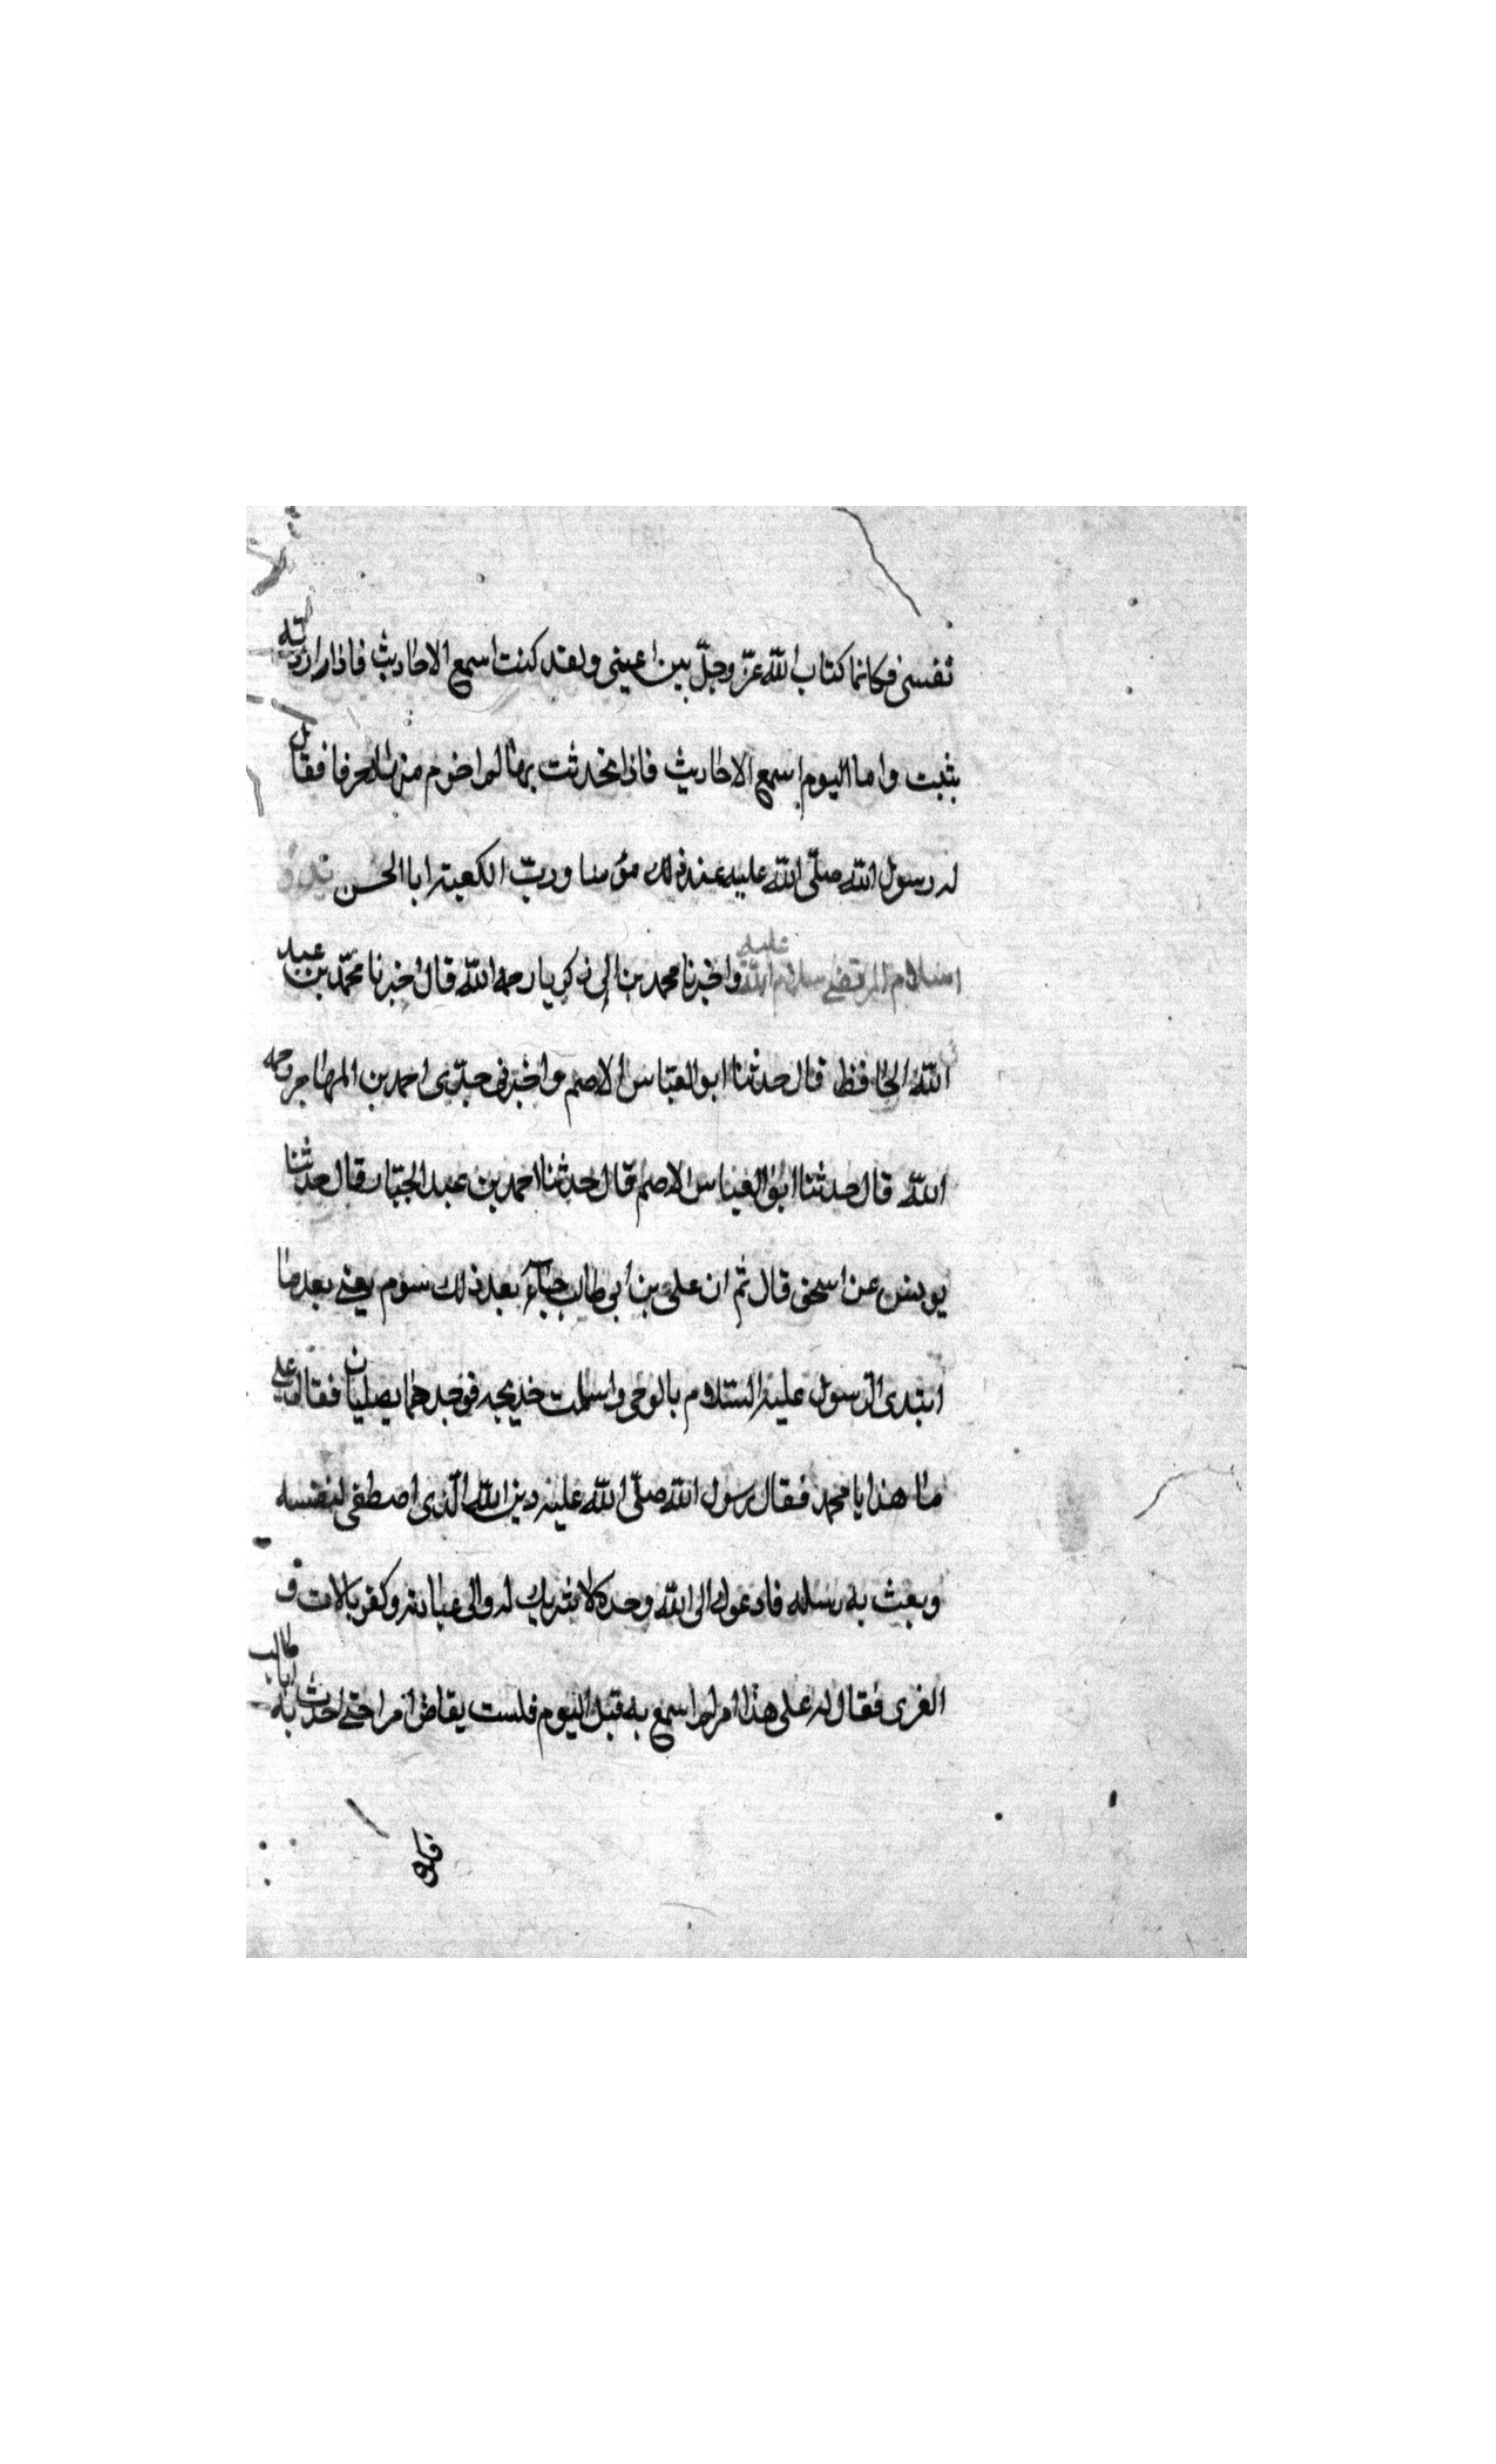 نفسى فكانما كتاب الله عزّ وجلّ بين عينى ولقد كنت اسمع الاحاديث فاذا اردته
بثبت واما اليوم اسمع الاحاديث فاذا تحدثت بها لم اخرم منها حرفا فقال
له رسول الله صلّى الله عليه عند ذلك مؤمنا وربّ الكعبة ابا الحسن
اسلام المرتضى سلام الله عليه واخبرنا محمد بن ابى زكريا رحمه الله قال اخبرنا محمّد بن عبد
الله الحافظ قال حدثنا ابو العبّاس الاصم واخبرنى جدّى احمد بن المهاجر رحمه
الله قال حدثنا ابو العباس الاصم قال حدثنا احمد بن عبد الجبّار قال حدثنا
يونس عن اسحق قال ثم ان على بن ابى طالب جاء بعد ذلك بيوم يعنى بعد ما
ابتدى الرسول عليه السّلام بالوحى واسلمت خديجه فوجدهما يصليان فقال على
ما هذا يا محمد فقال رسول الله صلّى الله عليه دين الله الّذى اصطفى لنفسه
وبعث به رسله فادعوك الى الله وحده لا شريك له والى عبادته وكفر بالات و
العزى فقال له على هذا امر لم اسمع به قبل اليوم فلست بقاض امرا حتى احدث به ابا طالب